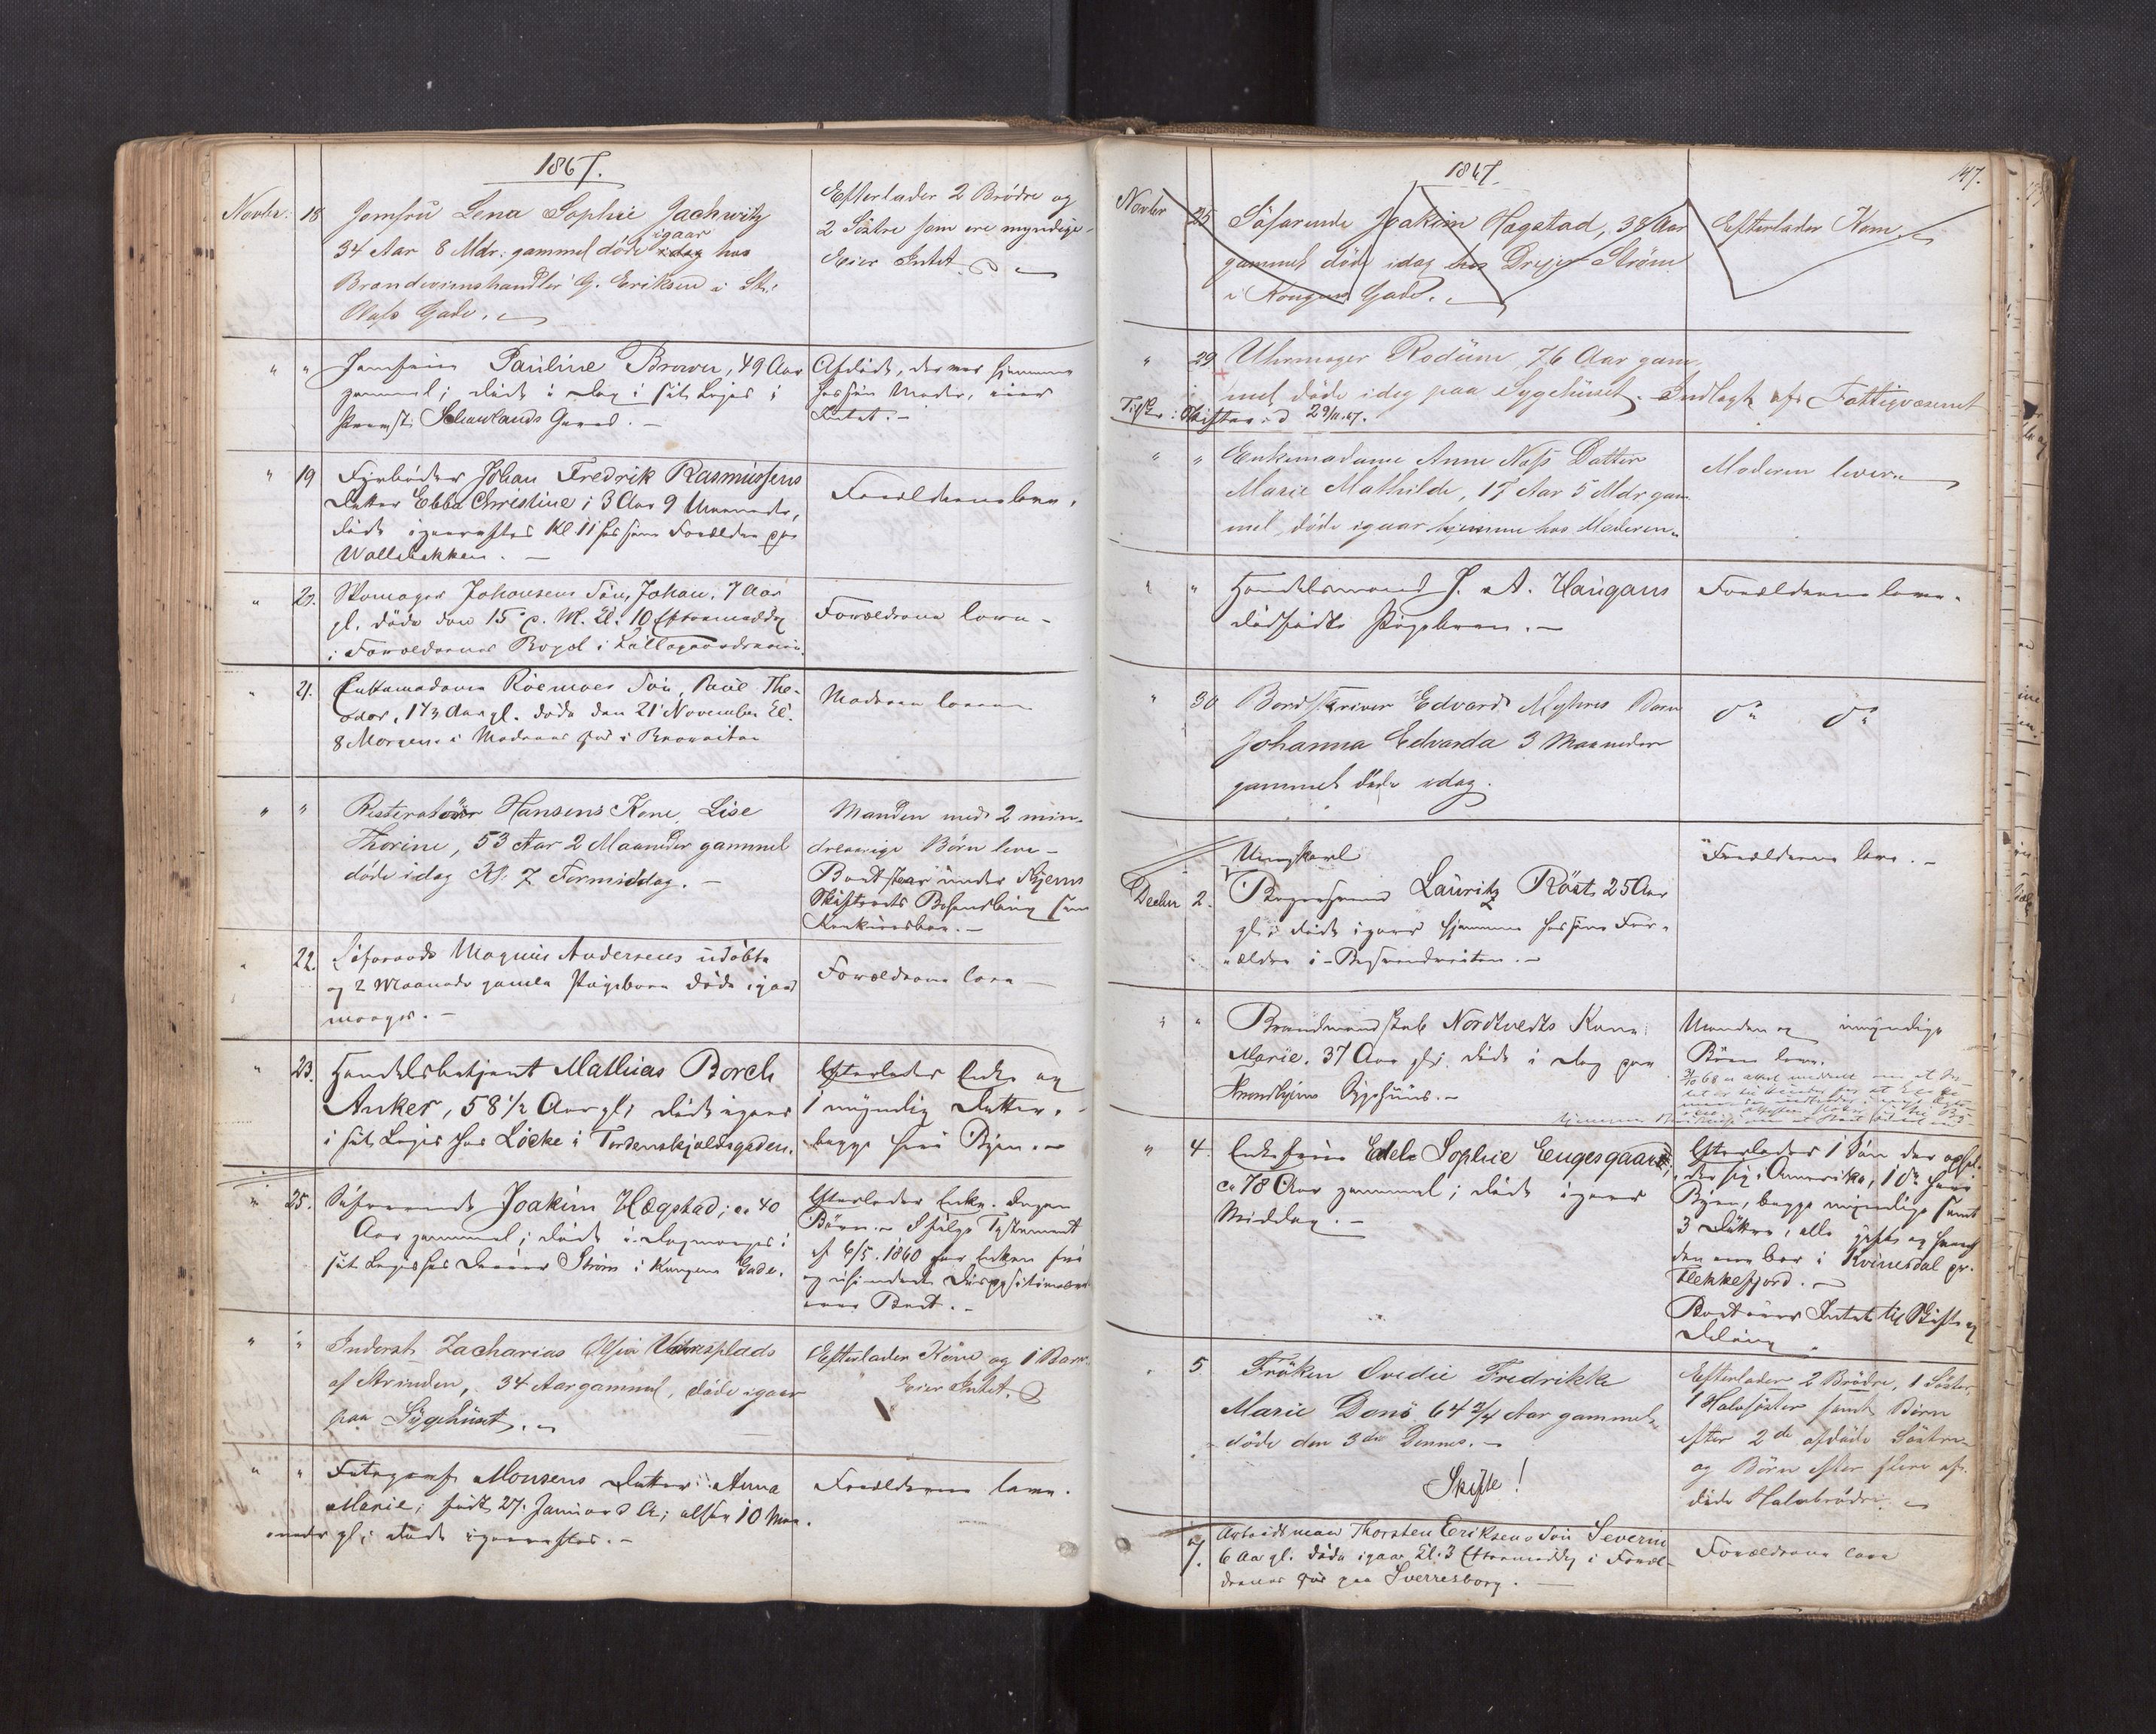 1867.
Novbr: 18 Jomfru Lena Sophie Jachwitz
igaar
34 Aar 8 Mdr: gammel døde idag hos
Brændevinshandler G. Eriksen i St:
Olafs Gade.
Efterlader 2 Brødre og
2 Söstre som ere myndige.
Eier Intet.
" " Jomfrue Pauline Brower, 49 Aar
gammel; døde i Dag i sit Logis i
Schawlands Gaard.
Afdøde, der var hjemme
hos sin Moder, eier
Intet.-
" 19 Fyrbøder Johan Fredrik Rasmussens
Datter Ebba Christine; 3 Aar 9 Maaneder,
døde igaaraftes Kl. 11 hos sine Forældre paa
Wollebakken.-
Forældrene leve.
" 20. Skomager Johansens Sön, Johan, 7 Aar
gl. døde den 15 p. M. Kl. 10 Eftermiddag
i Forældrenes Bopæl i
Forældrene leve-
" 21. Enkemadame Röemoes Sön, Paul The-
odor, 17 Aar gl. døde den 21 November Kl.
8 Morgen i Moderens Hus i
Moderen lever
" " Restoratör Hansens Kone, Lise
Thorine, 53 Aar 2 Maaneder gammel
døde idag Kl. 7 Formiddag.-
Manden med 2 min-
dreaarige Børn leve-
Boet staar under Byens
Skifterets Behandling som
Konkursbo.-
" 22. Søfarende Magnus Andersens udöbte
og 2 Maaneder gamle Pigebarn døde igaar
morges.-
Forældrene leve
" 23. Handelsbetjent Mathias Borch
Anker, 58 1/2 Aar gl; døde igaar
i sit Logis hos Löcke i Tordenskjoldsgaden.
Efterlader Enke og
1 myndig Datter,
begge her i Byen.
" 25. Søfarende Joakim Hægstad; ca 40
Aar gammel; døde i Dagmorges i
sit Logis hos Dreier Ström i Kongens Gade.
Efterlader Enke. Ingen
Børn. Ifølge Testament
af 6/5. 1860 har Enken fri
og uhindret Dispositionsret
over Boet.-
" " Inderst Zacharias Olsen Vorresplads
af Strinden, 34 Aar gammel, døde igaar
paa Sygehuset.
Efterlader Kone og 1 Barn.
Eier Intet.
" " Fotograf Monsens Datter: Anna
Marie; født 27. Januar d. A; altsaa 10 Maa-
neder gl; døde igaaraftes.-
Forældrene leve.
1867.
147.
Novbr 25 Söfarende Joakim Hagstad, 38 Aar
gammel döde idag hos Drejer Ström
i Kongens Gade.
Efterlader Kone
" 29 Uhrmager Rodüm, 76 Aar gam-
mel døde idag paa Sygehuset. Indlagt af Fattigvæsenet
Skifter. d 29/11.67.
" " Enkemadame Anne Næss Datter
Marie Mathilde, 17 Aar 5 Mdr gam-
mel, døde igaar hjemme hos Moderen.
Moderen lever
" " Handelsmand J. A. Haugans
dødfødte Pigebarn.-
Forældrene leve.
" 30 Bordskriver Edvard Myhres Barn
Johanna Edvarda 3 Maaneder
gammel døde idag.
do do
Ungkarl
Decbr 2. Bagersvend Lauritz Röst 25 Aar
gl; døde igaar hjemme hos sine For-
ældre i
Forældrene leve.-
" " Brandmandskab Nordtvedts Kone:
Marie, 37 Aar gl; døde i Dag paa
Trondhjems Sygehuus.-
Manden og umyndige
Börn leve.
" 4. Enkefrue Edele Sophie Eugesgaard;
ca 78 Aar gammel; døde igaar
Middag.-
Efterlader 1 Sön der ophol-
der sig i Amerika, 1 do her i
Byen, begge myndige samt
3 Döttre, alle gifte og hvoraf
den ene bor i Kvinesdal pr.
Flekkefjord.-
Boet eier Intet til Skifte og
Deling.
" 5 Fröken Ovedie Fredrikke
Marie Donö 64 3/4 Aar gammel
døde den 3die Dennes.-
Skifte!
Efterlader 2 Brödre, 1 Söster
1 Halvsöster samt Börn
efter 2de afdöde Söstre
og Börn efter flere af-
döde Halvbrödre.
" 7. Arbeidsmand Thorsten Eriksens Sön Severin
6 Aar gl. døde igaar Kl. 3 Eftermiddag i Foræl-
drenes Hus paa Sverresborg.-
Forældrene leve